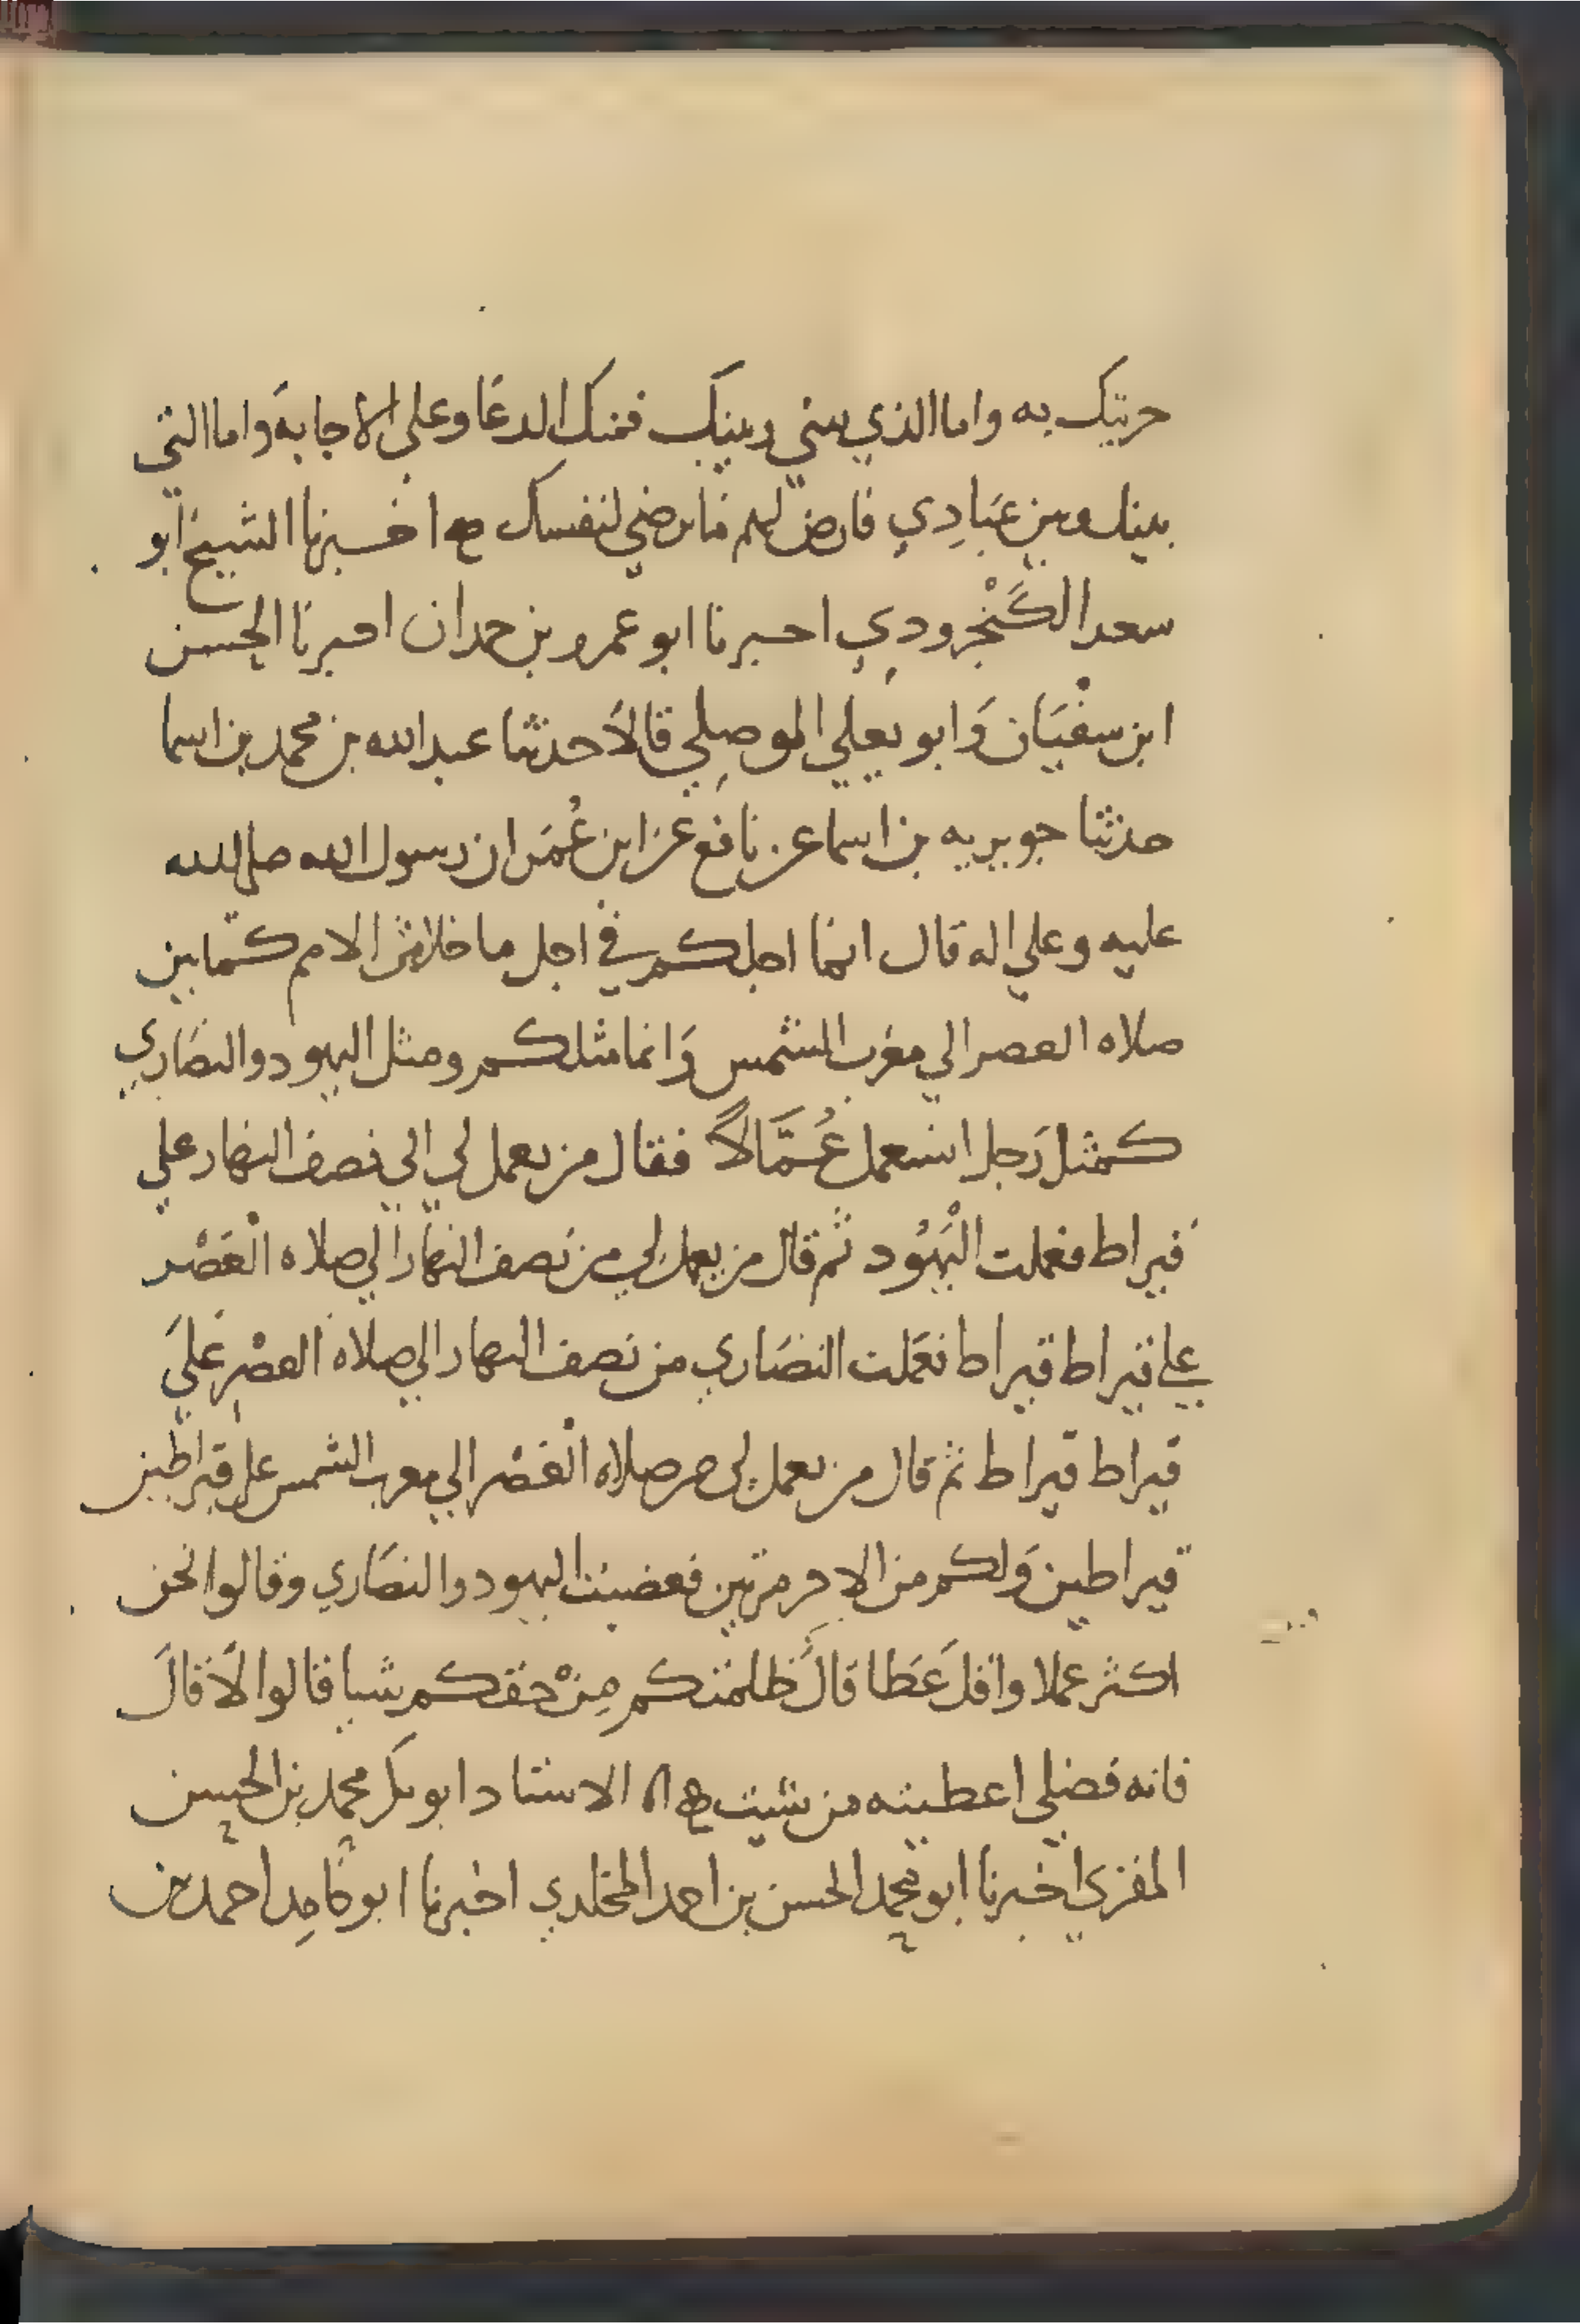 جزيتك به واما الذي بيني وبينك فمنك الدعا وعلي الاجابة واما التي
بينك وبين عبادي فارض لهم ما ترضي لنفسك ه اخبرنا الشيخ ابو
سعد الكَنْجرودي اخبرنا ابو عمرو بن حمدان اخبرنا الحسن
ابن سفْيَان وَابو يَعلي الموصلي قالاَ حدثنا عبد الله بن محمد بن اسما
حدثنا جويريه بن اسما عن نافع عن ابن عُمَر ان رسول الله صلي الله
عليه وعلي اله قال انما اجلكم في اجل ما خلا من الامم كما بين
صلاه العصر الي مغرب الشمس وَانما مثلكم ومثل اليهود والنصَاري
كمثل رَجل استعمل عُمَّالاً فقال من يعمل لي الي نصف النهار علي
قيراط فعملت الْيَهُود ثم قال من يعمل لي من نصف النهار الي صلاه الْعَصْر
علي قيراط قيراط فعَملت النصَاري من نصف النهار الي صلاه العصْرِ عَليَ
قيراط قيراط ثم قال من يعمل لي من صلاه الْعَصْر الي مغرب الشمس علي قيراطين
قيراطين وَلكم من الاجر مرتين فغضبت اليهود والنصَاري وقالوا نحن
اكثر عملا واقل عَطَا قالَ ظلمتكم مِنْ حقكم شيا قالوا لاَ قالَ
فانه فضلي اعطيته من شيت ه انا الاستاد ابو بكر محمد بن الحسن
المقري اخبرنا ابو محمد الحسن بن احمد المخلدي اخبرنا ابو حَامِد احمد بن